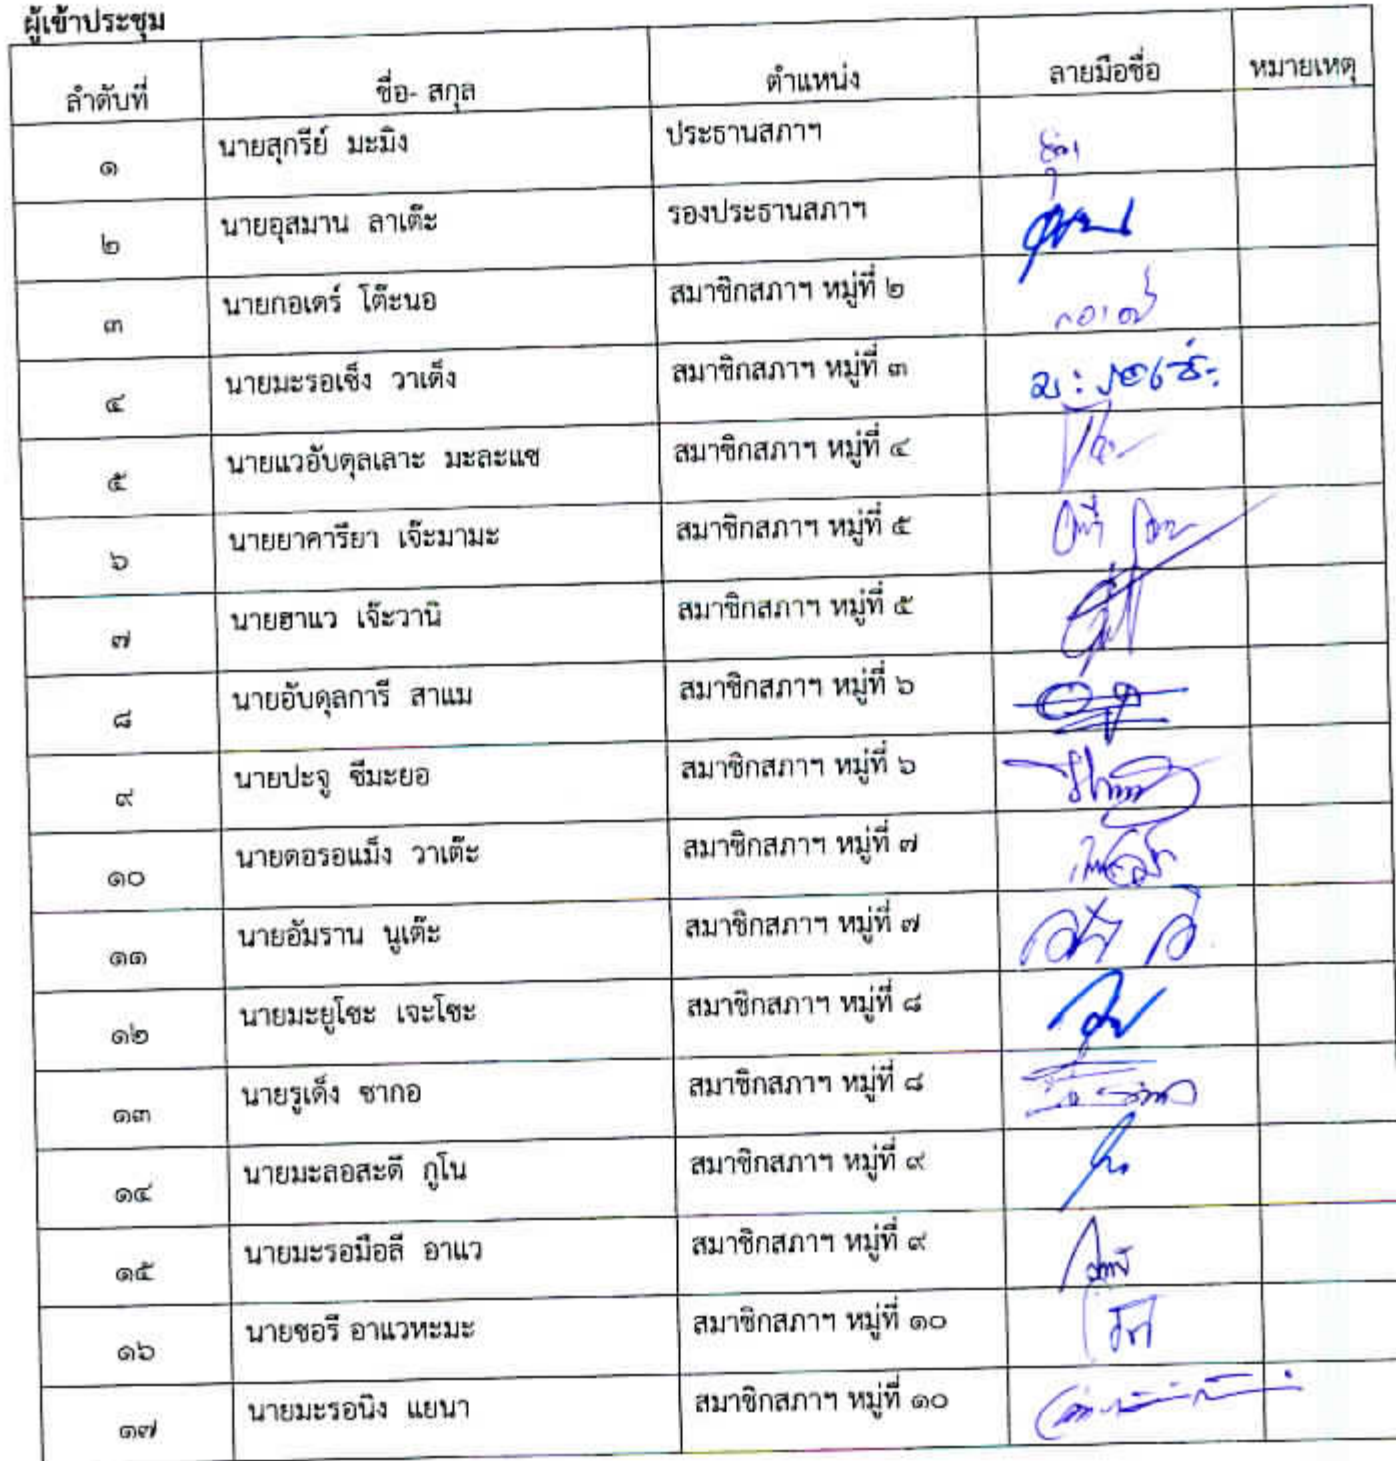 ผู้เข้าประชุม
ลำดับที่ ชื่อ- สกุล ตำแหน่ง ลายมือชื่อ หมายเหตุ
๑ นายสุกรีย์ มะมิง ประธานสภาฯ
๒ นายอุสมาน ลาเต๊ะ รองประธานสภาฯ
๓ นายกอเดร์ โต๊ะนอ สมาชิกสภาฯ หมู่ที่ ๒
๔ นายมะรอเซ็ง วาเด็ง สมาชิกสภาฯ หมู่ที่ ๓
๕ นายแวอับดุลเลาะ มะละแซ สมาชิกสภาฯ หมู่ที่ ๔
๖ นายยาคารียา เจ๊ะมามะ สมาชิกสภาฯ หมู่ที่ ๕
๗ นายฮาแว เจ๊ะวานิ สมาชิกสภาฯ หมู่ที่ ๕
๘ นายอับดุลการี สาแม สมาชิกสภาฯ หมู่ที่ ๖
๙ นายปะจู ซีมะยอ สมาชิกสภาฯ หมู่ที่ ๖
๑๐ นายดอรอแม็ง วาเต๊ะ สมาชิกสภาฯ หมู่ที่ ๗
๑๑ นายอัมราน นูเต๊ะ สมาชิกสภาฯ หมู่ที่ ๗
๑๒ นายมะยูโซะ เจะโซะ สมาชิกสภาฯ หมู่ที่ ๘
๑๓ นายรูเด็ง ซากอ สมาชิกสภาฯ หมู่ที่ ๘
๑๔ นายมะลอสะดี กูโน สมาชิกสภาฯ หมู่ที่ ๙
๑๕ นายมะรอมือลี อาแว สมาชิกสภาฯ หมู่ที่ ๙
๑๖ นายซอรี อาแวหะมะ สมาชิกสภาฯ หมู่ที่ ๑๐
๑๗ นายมะรอนิง แยนา สมาชิกสภาฯ หมู่ที่ ๑๐